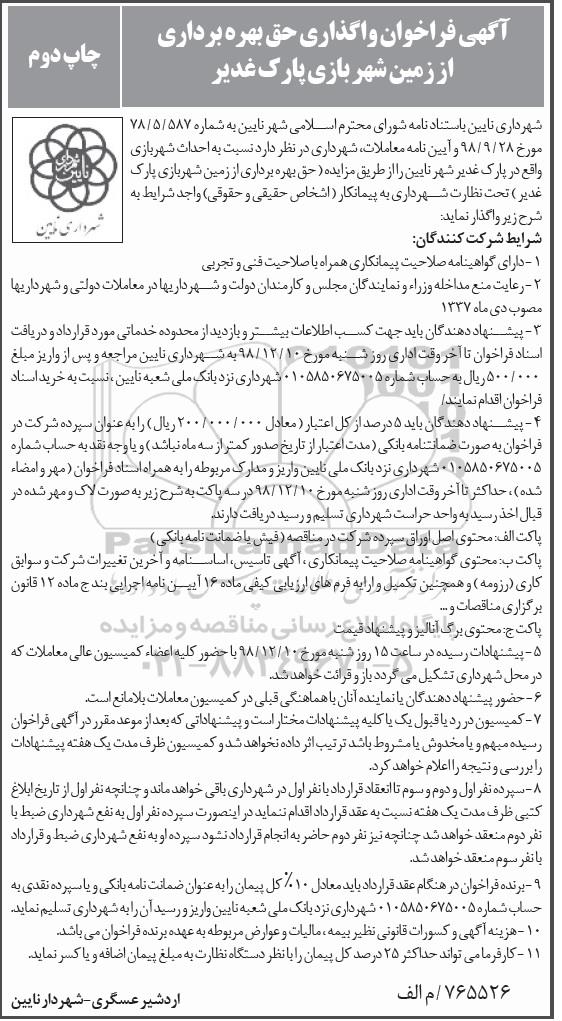 آگهی فراخوان واگذاری حق بهره برداری
از زمین شهربازی پارک غدیر
چاپ دوم
شهرداری نایین باستناد نامه شورای محترم اسلامی شهر نایین به شماره ۷۸/۵/۵۸۷
مورخ ۹۸/۹/۲۸ و آیین نامه معاملات، شهرداری در نظر دارد نسبت به احداث شهربازی
واقع در پارک غدیر شهر نایین را از طریق مزایده (حق بهره برداری از زمین شهربازی پارک
غدیر) تحت نظارت شهرداری به پیمانکار (اشخاص حقیقی و حقوقی) واجد شرایط به
شرح زیر واگذار نماید:
شهرداری نایین
شرایط شرکت کنندگان:
۱-دارای گواهینامه صلاحیت پیمانکاری همراه با صلاحیت فنی و تجربی
۲-رعایت منع مداخله وزراء و نمایندگان مجلس و کارمندان دولت و شهرداریها در معاملات دولتی و شهرداریها
مصوب دی ماه ۱۳۳۷
۳-پیشنهاد دهندگان باید جهت کسب اطلاعات بیشتر و بازدید از محدوده خدماتی مورد قرارداد و دریافت
اسناد فراخوان تا آخر وقت اداری روز شنبه مورخ ۹۸/۱۲/۱۰ به شهرداری نایین مراجعه و پس از واریز مبلغ
۵۰۰/۰۰۰ ریال به حساب شماره ۰۱۰۵۸۵۰۶۷۵۰۰۵ شهرداری نزد بانک ملی شعبه نایین، نسبت به خرید اسناد
فراخوان اقدام نمایند/
۴-پیشنهاد دهندگان باید ۵ درصد از کل اعتبار (معادل ۲۰۰/۰۰۰/۰۰۰ ریال) را به عنوان سپرده شرکت در
فراخوان به صورت ضمانتنامه بانکی (مدت اعتبار از تاریخ صدور کمتر از سه ماه نباشد) و یا وجه نقد به حساب شماره
۰۱۰۵۸۵۰۶۷۵۰۰۵ شهرداری نزد بانک ملی نایین واریز و مدارک مربوطه را به همراه اسناد فراخوان (مهر و امضاء
شده)، حداکثر تا آخر وقت اداری روز شنبه مورخ ۹۸/۱۲/۱۰ در سه پاکت به شرح زیر به صورت لاک و مهر شده در
قبال اخذ رسید به واحد حراست شهرداری تسلیم و رسید دریافت دارند.
پاکت الف: محتوی اصل اوراق سپرده شرکت در مناقصه (فیش یا ضمانت نامه بانکی)
پاکت ب: محتوی گواهینامه صلاحیت پیمانکاری، آگهی تاسیس، اساسنامه و آخرین تغییرات شرکت و سوابق
کاری (رزومه) و همچنین تکمیل و ارایه فرم های ارزیابی کیفی ماده ۱۶ آیین نامه اجرایی بند ج ماده ۱۲ قانون
برگزاری مناقصات و...
پاکت ج: محتوی برگ آنالیز و پیشنهاد قیمت
۵-پیشنهادات رسیده در ساعت ۱۵ روز شنبه مورخ ۹۸/۱۲/۱۰ با حضور کلیه اعضاء کمیسیون عالی معاملات که
در محل شهرداری تشکیل می گردد باز و قرائت خواهد شد.
۶-حضور پیشنهاد دهندگان یا نماینده آنان با هماهنگی قبلی در کمیسیون معاملات بلامانع است.
۷-کمیسیون در رد یا قبول یک یا کلیه پیشنهادات مختار است و پیشنهاداتی که بعد از موعد مقرر در آگهی فراخوان
رسیده مبهم و یا مخدوش یا مشروط باشد ترتیب اثر داده نخواهد شد و کمیسیون ظرف مدت یک هفته پیشنهادات
را بررسی و نتیجه را اعلام خواهد کرد.
۸-سپرده نفر اول و دوم و سوم تا انعقاد قرارداد با نفر اول در شهرداری باقی خواهد ماند و چنانچه نفر اول از تاریخ ابلاغ
کتبی ظرف مدت یک هفته نسبت به عقد قرارداد اقدام ننماید در اینصورت سپرده نفر اول به نفع شهرداری ضبط با
نفر دوم منعقد خواهد شد چنانچه نیز نفر دوم حاضر به انجام قرارداد نشود سپرده او به نفع شهرداری ضبط و قرارداد
با نفر سوم منعقد خواهد شد.
۹-برنده فراخوان در هنگام عقد قرارداد باید معادل ۱۰٪ کل پیمان را به عنوان ضمانت نامه بانکی و یا سپرده نقدی به
حساب شماره ۰۱۰۵۸۵۰۶۷۵۰۰۵ شهرداری نزد بانک ملی شعبه نایین واریز و رسید آن را به شهرداری تسلیم نماید.
۱۰-هزینه آگهی و کسورات قانونی نظیر بیمه، مالیات و عوارض مربوطه به عهده برنده فراخوان می باشد.
۱۱-کارفرما می تواند حداکثر ۲۵ درصد کل پیمان را با نظر دستگاه نظارت به مبلغ پیمان اضافه و یا کسر نماید.
۷۶۵۵۲۶/م الف
اردشیر عسگری-شهردار نایین